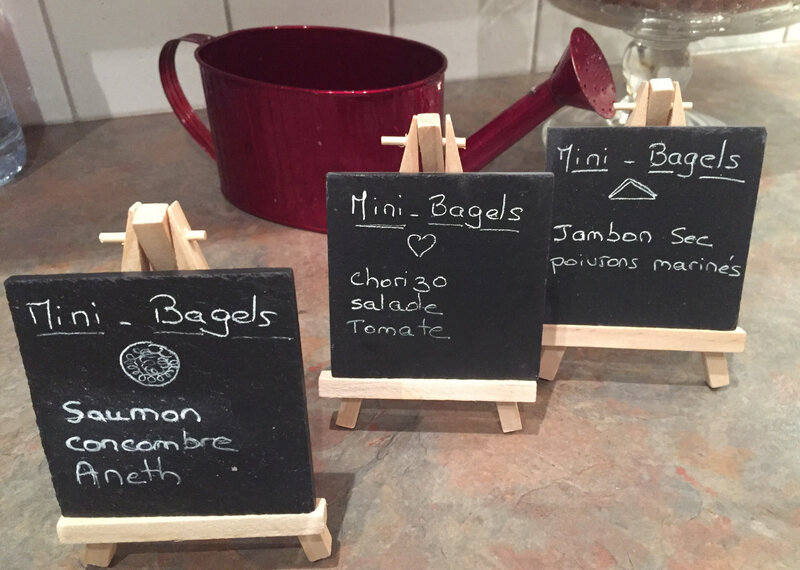 Mini - Bagels
Saumon
concombre
Aneth
Mini - Bagels
chorizo
salade
Tomate
Mini - Bagels
Jambon Sec
poivrons marinés